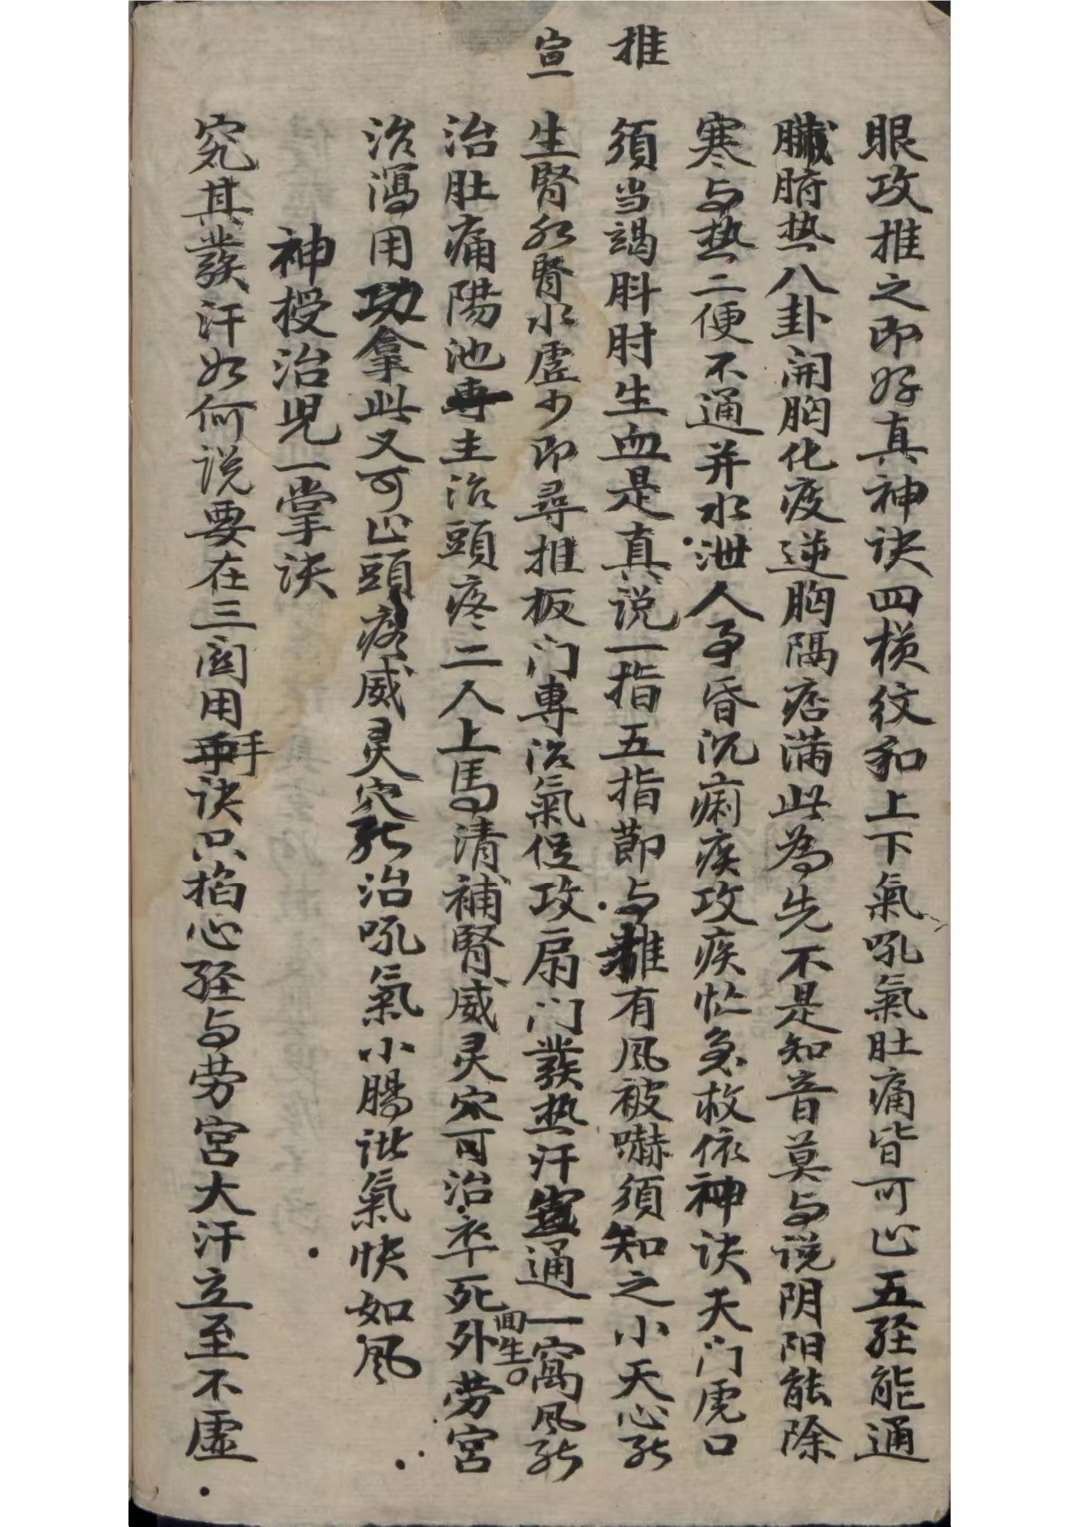 推
宣
眼攻推之即好真神诀四横纹和上下氣吼氣肚痛皆可止五经能通
臟腑热八卦開胸化痰逆胸隔痞满此為先不是知音莫与说阴阳能除
寒与热二便不通并水泄人事昏沉痢疾攻疾忙急救依神诀天门虎口
须当竭斗肘生血是真说一指五指節与推有风被嚇须知之小天心能
生腎水腎水虚少即尋推板门專治氣促攻扇门發热汗宣通一窝风能
治肚痛陽池專主治頭疼二人上馬清補腎威灵穴可治卒死回生外劳宮
治瀉用功拿此又可止頭疼威灵穴能治吼氣小腸诸氣快如风
神授治児一掌诀
究其發汗如何说要在三関用手诀只掐心经与劳宮大汗立至不虚